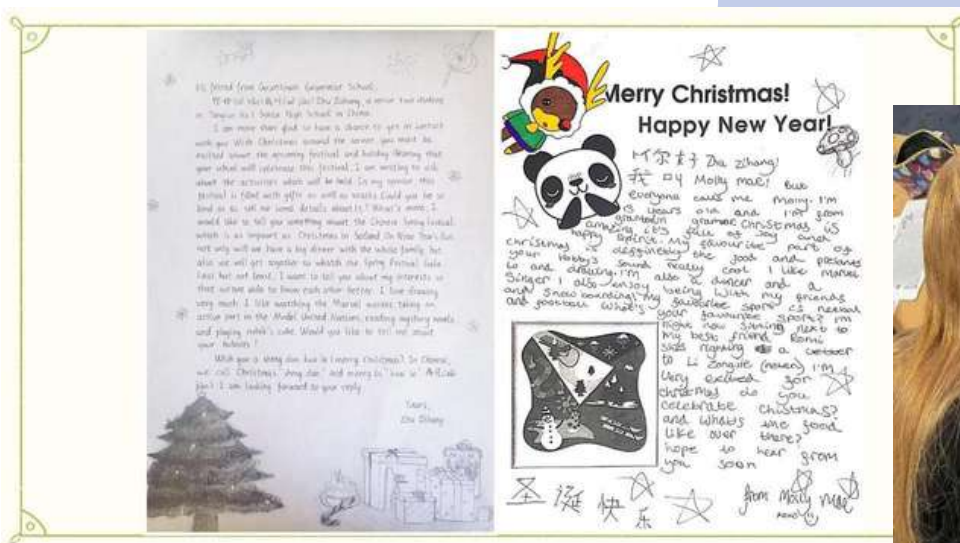 Hi, friend from Grantown Grammar School,
Zhu Zihang, a senior two student
in No.1 Senior High School in China.
I am more than glad to have a chance to get in contact
with you. With Christmas around the corner, you must be
excited about the upcoming festival and holiday. Hearing that
your school will celebrate this festival, I am writing to ask
about the activities which will be held. In my opinion, this
festival is filled with gifts as well as snacks. Could you be so
kind as to tell me some details about it? What's more, I
would like to tell you something about the Chinese Spring Festival
which is as important as Christmas in Scotland. On New Year's Eve,
not only will we have a big dinner with the whole family, but
also we will get together to watch the Spring Festival Gala.
Last but not least, I want to tell you about my interests so
that we are able to know each other better. I love drawing
very much. I like watching the Marvel movies, taking an
active part in the Model United Nations, reading mystery novels
and playing rubik's cube. Would you like to tell me about
your hobbies?
Wish you a sheng dan kuai le (merry Christmas)! In Chinese,
we call Christmas "sheng dan" and merry is "kuai le"
I am looking forward to your reply.
Yours,
Zhu Zihang
Merry Christmas!
Happy New Year!
你好 Zhu Zihang!
我叫 Molly mae! But
everyone calls me Molly. I'm
13 years old and I'm from
grantown grammar. Christmas is
amazing it's full of Joy and
happy spirit. My favourite part of
christmas is deffinetly the food and presents
your hobby's sound really cool I like marvel
to and drawing. I'm also a dancer and a
singer I also enjoy being with my friends
and snowboarding! My favourite sport is netball
and football what's
your favourite sport? I'm
right now sitting next to
my best friend Romi
she's righting a letter
to Li Zongze I'm
very excited for
christmas do you
celebrate Chistmas?
and what's the food
like over there?
hope to hear from
you soon
圣诞快乐
from Molly mae